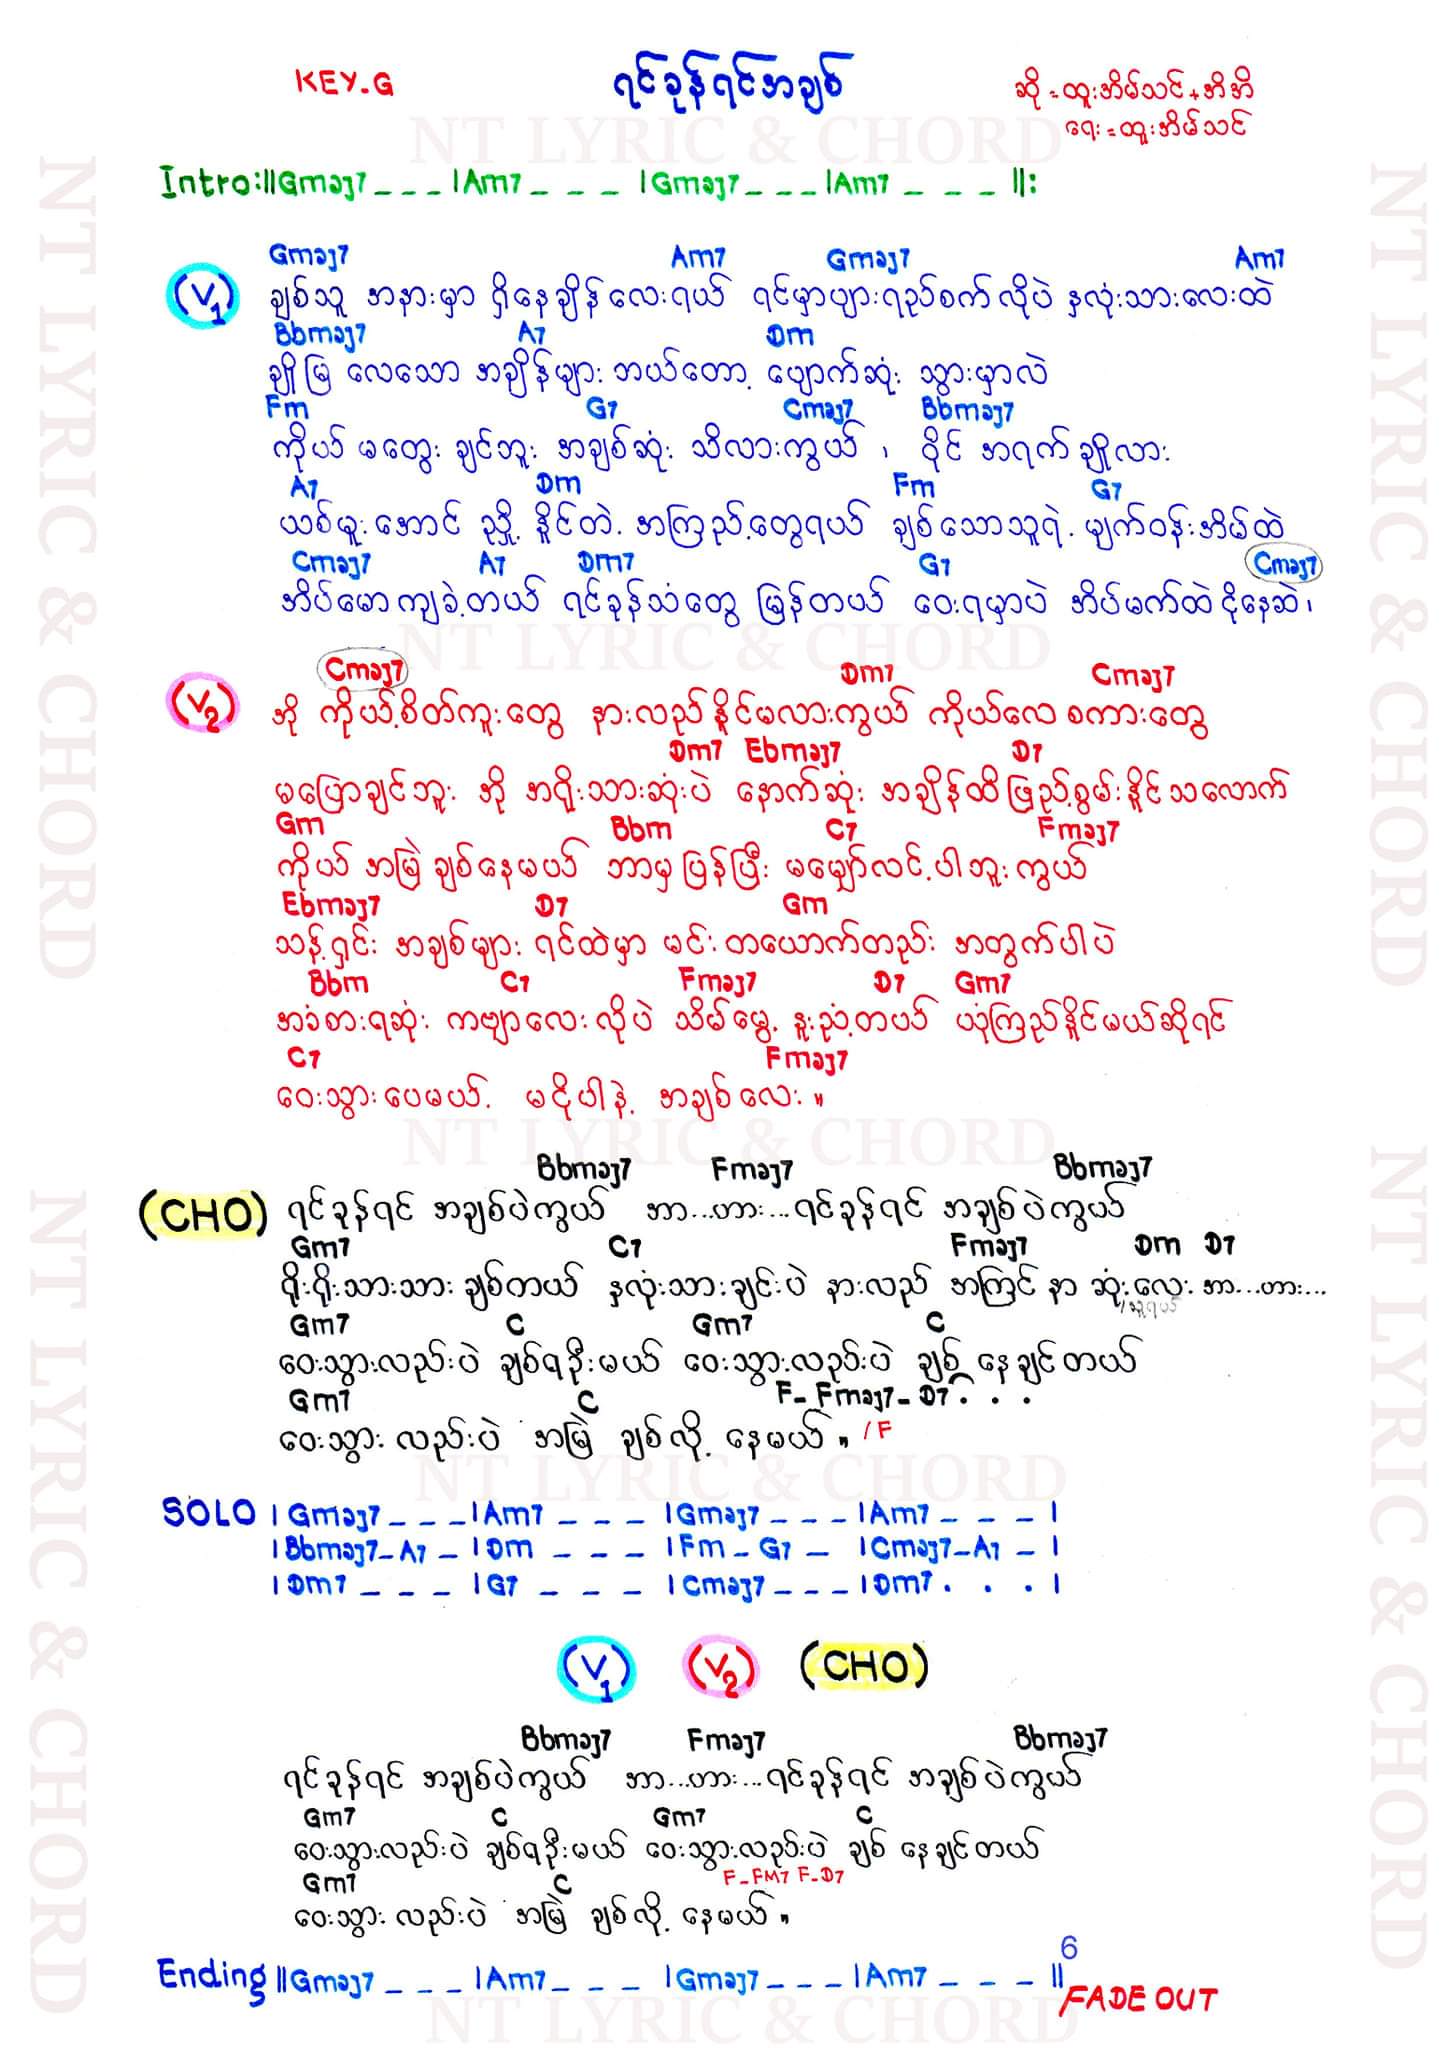 KEY.G
ရင်ခုန်ရင်အချစ်
ဆို = ထူးအိမ်သင်+အိအိ
ရေး = ထူးအိမ်သင်
NT LYRIC & CHORD
Intro:||Gmaj7 _ _ _ |Am7 _ _ _ |Gmaj7 _ _ _ |Am7 _ _ _ ||:
Gmaj7 Am7 Gmaj7 Am7
(V1) ချစ်သူ အနားမှာ ရှိနေချိန်လေးရယ် ရင်မှာများရည်စက်လိုပဲ နှလုံးသားလေးထဲ
Bbmaj7 A7 Dm
ချိုမြ လေသော အချိန်များ ဘယ်တော့ ပျောက်ဆုံး သွားမှာလဲ
Fm G7 Cmaj7 Bbmaj7
ကိုယ် မတွေး ချင်ဘူး အချစ်ဆုံး သိလားကွယ် ၊ ဝိုင် အရက် ချိုလား
A7 Dm Fm G7
ယစ်မူးအောင် ညှို့ နိုင်တဲ့ အကြည့်တွေရယ် ချစ်သောသူရဲ့ မျက်ဝန်းအိမ်ထဲ
Cmaj7 A7 Dm7 G7 Cmaj7
အိပ်မောကျခဲ့တယ် ရင်ခုန်သံတွေ မြန်တယ် ဝေးရမှာပဲ အိပ်မက်ထဲ ငိုနေဆဲ၊
NT LYRIC & CHORD
Cmaj7 Dm7 Cmaj7
(V2) အို ကိုယ့်စိတ်ကူးတွေ နားလည်နိုင်မလားကွယ် ကိုယ်လေ စကားတွေ
Dm7 Ebmaj7 D7
မပြောချင်ဘူး အို အရိုးသားဆုံးပဲ နောက်ဆုံး အချိန်ထိ ဖြည့်စွမ်းနိုင်သလောက်
Gm Bbm C7 Fmaj7
ကိုယ် အမြဲ ချစ်နေမယ် ဘာမှ ပြန်ပြီး မမျှော်လင့်ပါဘူးကွယ်
Ebmaj7 D7 Gm
သန့်ရှင်း အချစ်များ ရင်ထဲမှာ မင်းတယောက်တည်း အတွက်ပါပဲ
Bbm C7 Fmaj7 D7 Gm7
အခံစားရဆုံး ကဗျာလေးလိုပဲ သိမ်မွေ့ နူးညံ့တယ် ယုံကြည်နိုင်မယ်ဆိုရင်
C7 Fmaj7
ဝေးသွားပေမယ့် မငိုပါနဲ့ အချစ်လေး ။
NT LYRIC & CHORD
Bbmaj7 Fmaj7 Bbmaj7
(CHO) ရင်ခုန်ရင် အချစ်ပဲကွယ် အာ...ဟား...ရင်ခုန်ရင် အချစ်ပဲကွယ်
Gm7 C7 Fmaj7 Dm D7
ရိုးရိုးသားသား ချစ်တယ် နှလုံးသားချင်းပဲ နားလည် အကြင် နာ ဆုံးလေး အာ...ဟား...
/သူရယ်
Gm7 C Gm7 C
ဝေးသွားလည်းပဲ ချစ်ရဦးမယ် ဝေးသွားလည်းပဲ ချစ် နေချင်တယ်
Gm7 C F- Fmaj7- D7 . . .
ဝေးသွား လည်းပဲ အမြဲ ချစ်လို့ နေမယ် ။ /F
NT LYRIC & CHORD
SOLO |Gmaj7 _ _ _ |Am7 _ _ _ |Gmaj7 _ _ _ |Am7 _ _ _ |
|Bbmaj7-A7 - |Dm _ _ _ |Fm - G7 - |Cmaj7-A7 - |
|Dm7 _ _ _ |G7 _ _ _ |Cmaj7 _ _ _ |Dm7 . . . |
(V1) (V2) (CHO)
Bbmaj7 Fmaj7 Bbmaj7
ရင်ခုန်ရင် အချစ်ပဲကွယ် အာ...ဟား...ရင်ခုန်ရင် အချစ်ပဲကွယ်
Gm7 C Gm7 C
ဝေးသွားလည်းပဲ ချစ်ရဦးမယ် ဝေးသွားလည်းပဲ ချစ် နေချင်တယ်
Gm7 C F-FM7 F-D7
ဝေးသွား လည်းပဲ အမြဲ ချစ်လို့ နေမယ် ။
Ending ||Gmaj7 _ _ _ |Am7 _ _ _ |Gmaj7 _ _ _ |Am7 _ _ _ || 6
FADE OUT
NT LYRIC & CHORD
NT LYRIC & CHORD
NT LYRIC & CHORD
NT LYRIC & CHORD
NT LYRIC & CHORD